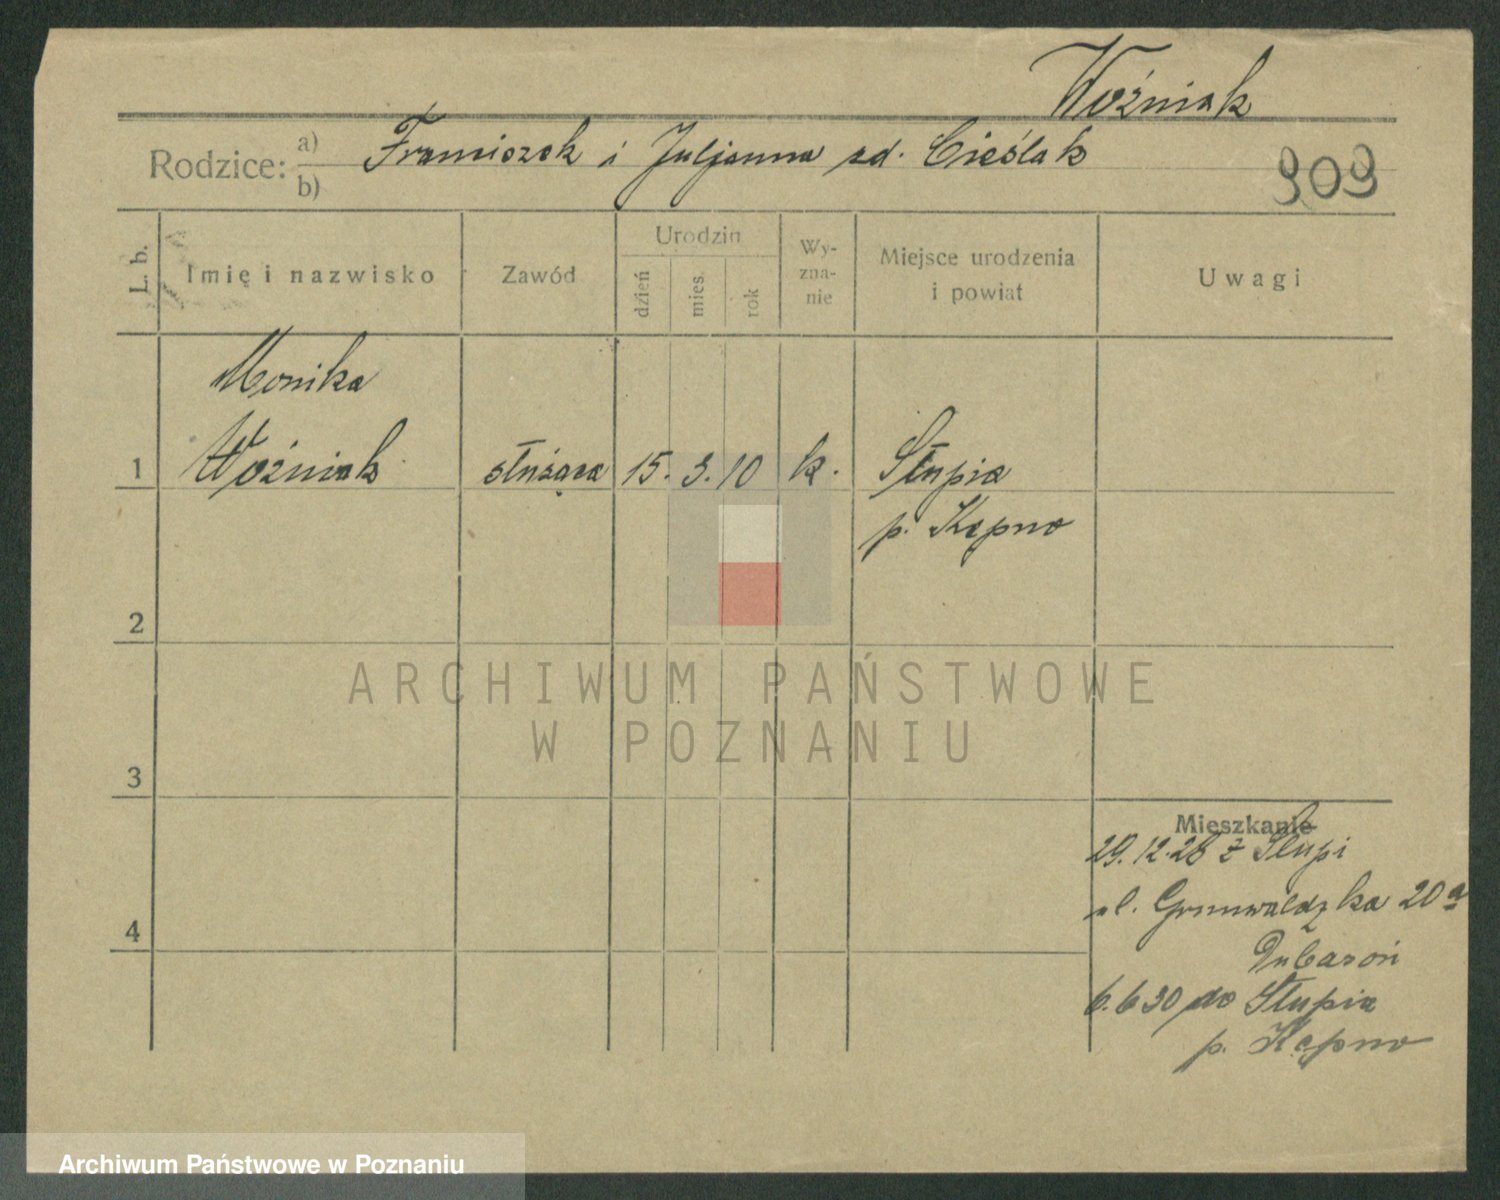 Woźniak
Rodzice: a) Franciszek i Juljanna zd. Cieślak
b)
909
L. b. Imię i nazwisko Zawód Urodzin dzień mies. rok Wyznanie Miejsce urodzenia i powiat Uwagi
Monika
1 Woźniak służąca 15. 3. 10 k. Słupia
p. Kępno
2
ARCHIWUM PAŃSTWOWE
W POZNANIU
3
Mieszkanie
29.12.28 z Słupi
ul. Grunwaldzka 20a
4
6.6 30 do Słupia
p. Kępno
Archiwum Państwowe w Poznaniu